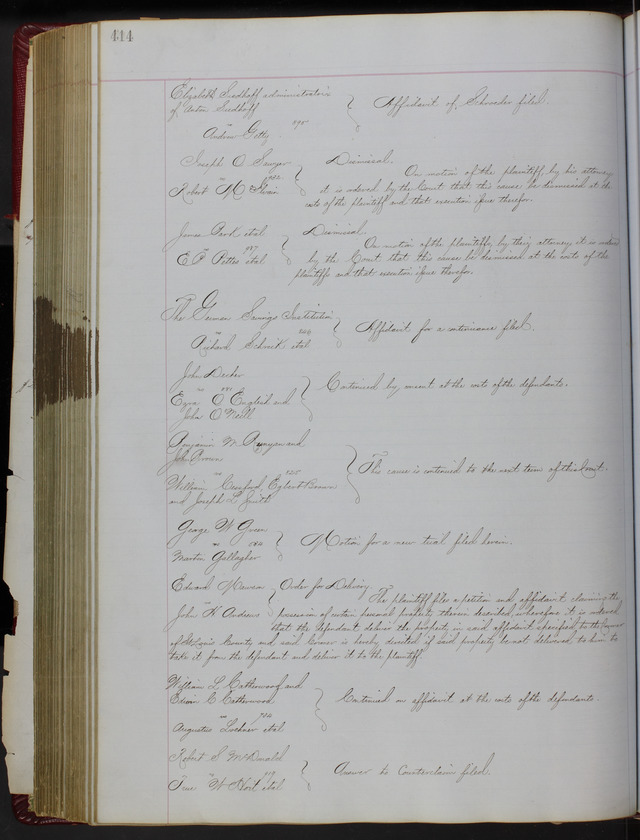 414
Elizabeth Seedhoff administratrix
of Anton Seedhoff
vs
Andrew Getty
Affidavit of Schroeder filed.
Joseph O Sawyer
vs
Robert M Elwain
Dismissal.
On motion of the plaintiff, by his attorney
it is ordered by the Court that this cause be dismissed at the
costs of the plaintiff and that execution issue therefor.
James Park etal
vs
E P Pettes etal
Dismissal.
On motion of the plaintiffs by their attorney it is ordered
by the Court that this cause be dismissed at the costs of the
plaintiffs and that execution issue therefor.
The German Savings Institution
vs
Richard Schmick etal
Affidavit for a continuance filed.
John Decker
vs
Ezra O England and
John O'Neill
Continued by consent at the costs of the defendants.
Benjamin M Runyan and
John Brown
vs
William Crawford, Egbert Brown
and Joseph L Smith
This cause is continued to the next term of this Court.
George W Green
vs
Martin Gallagher
Motion for a new trial filed herein.
Edward
vs
John H Andrews
Order for Delivery.
The plaintiff files a petition and affidavit claiming the
possession of certain personal property therein described, wherefore it is ordered
that the defendant deliver the property in said affidavit specified to the Coroner
of St Louis County and said Coroner is hereby directed if said property be not delivered to him to
take it from the defendant and deliver it to the plaintiff.
William L Catherwood and
Edwin C Catherwood
vs
Augustus Lochner etal
Continued on affidavit at the costs of the defendants.
Robert S McDonald
vs
True W Hoit etal
Answer to Counterclaim filed.